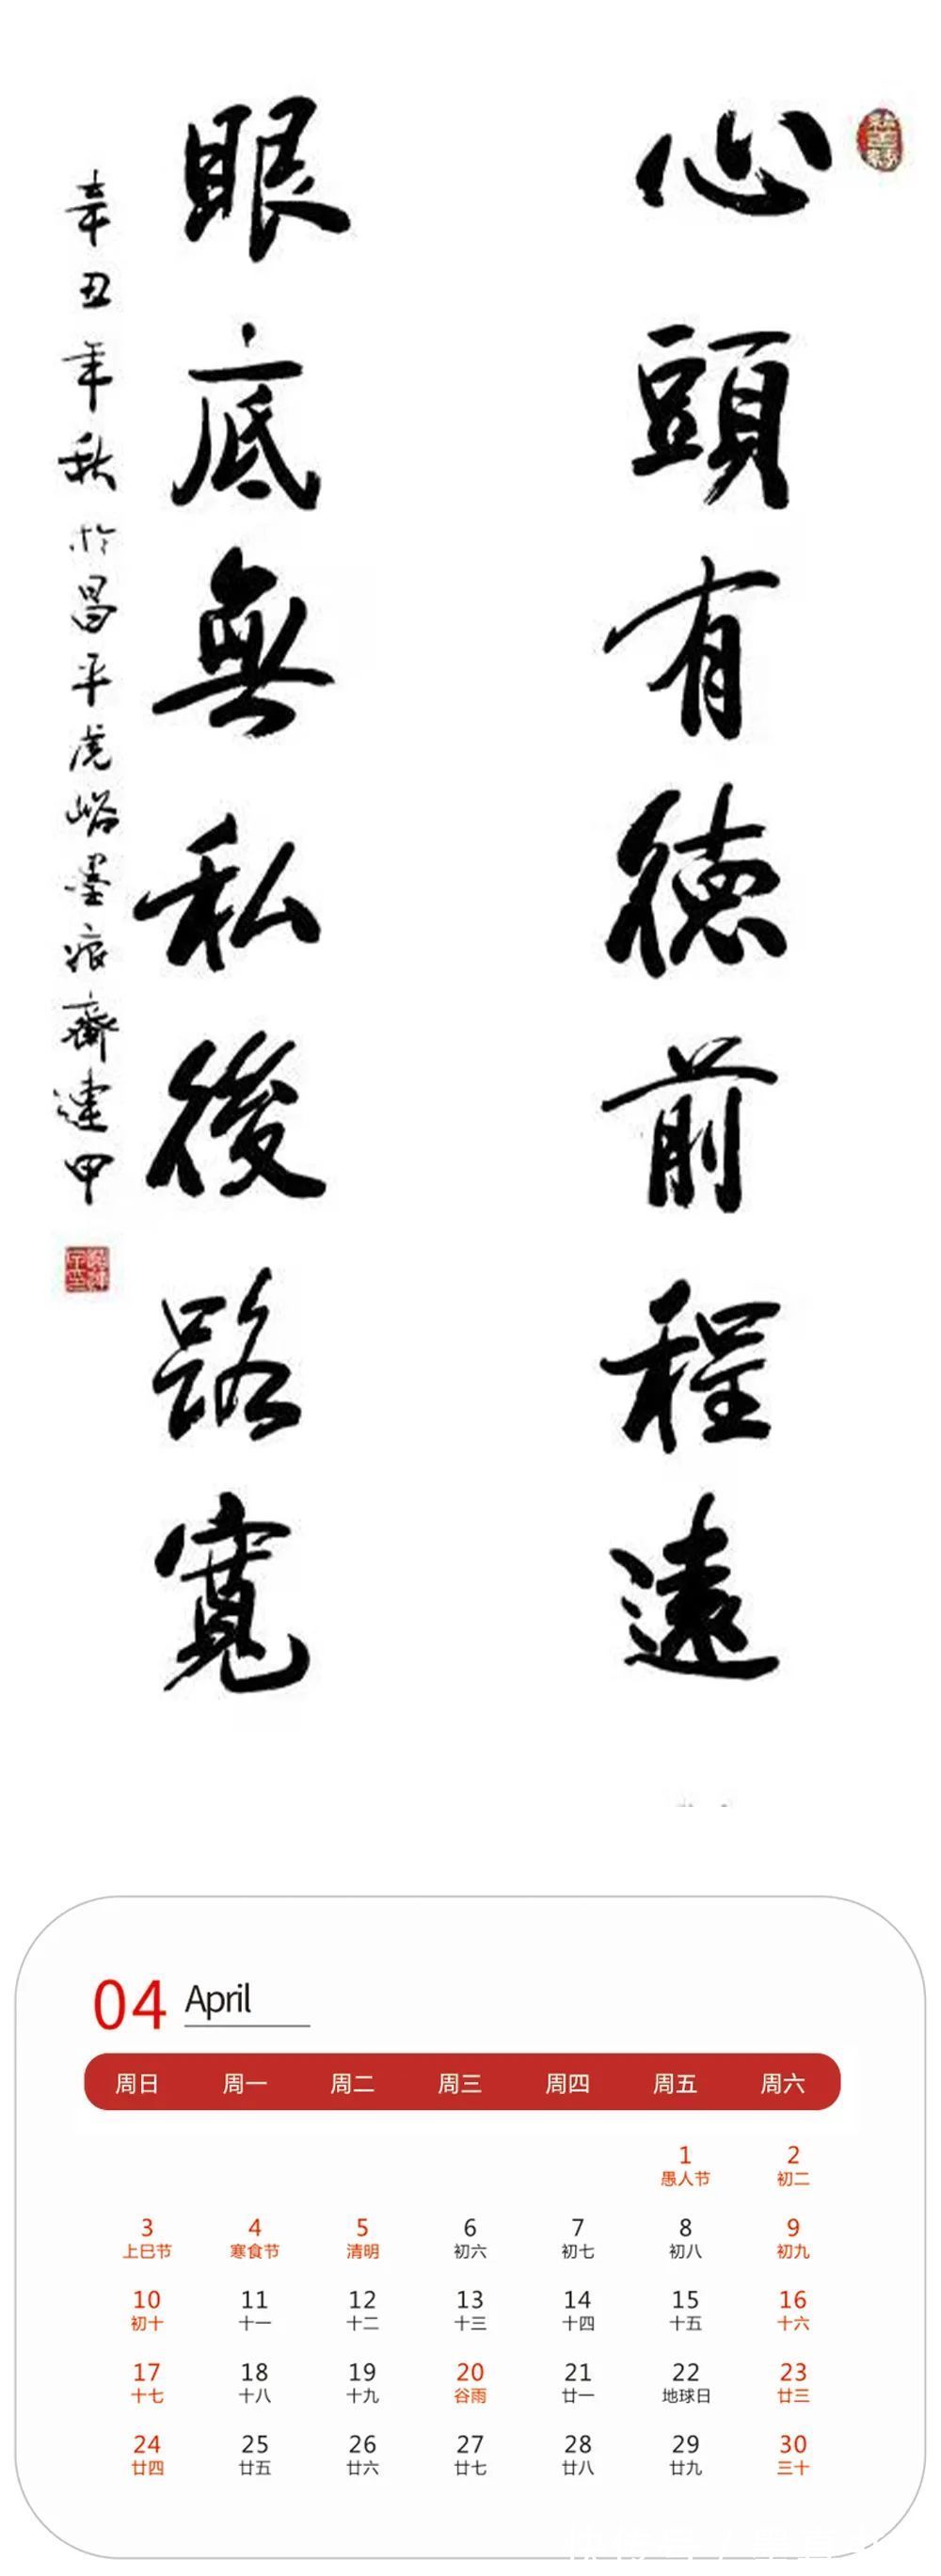 心頭有德前程遠
眼底無私後路寬
辛丑年秋於昌平虎峪墨痕齋連甲
04 April
周日 周一 周二 周三 周四 周五 周六
1 2
愚人节 初二
3 4 5 6 7 8 9
上巳节 寒食节 清明 初六 初七 初八 初九
10 11 12 13 14 15 16
初十 十一 十二 十三 十四 十五 十六
17 18 19 20 21 22 23
十七 十八 十九 谷雨 廿一 地球日 廿三
24 25 26 27 28 29 30
廿四 廿五 廿六 廿七 廿八 廿九 三十